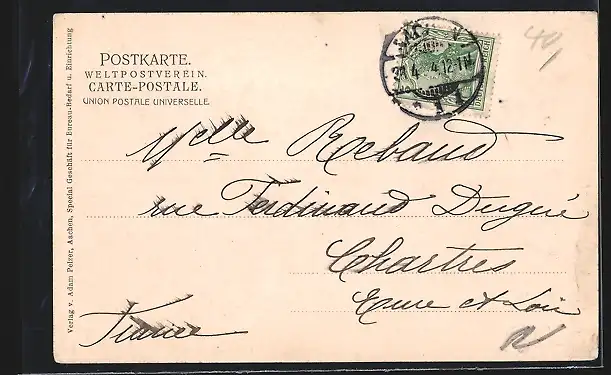 POSTKARTE.
WELTPOSTVEREIN.
CARTE-POSTALE.
UNION POSTALE UNIVERSELLE.
Verlag v. Adam Pelzer, Aachen, Special Geschäft für Bureau-Bedarf u. Einrichtung
40,
Melle Rebaud
rue Ferdinand Dugué
Chartres
Eure et Loir
France